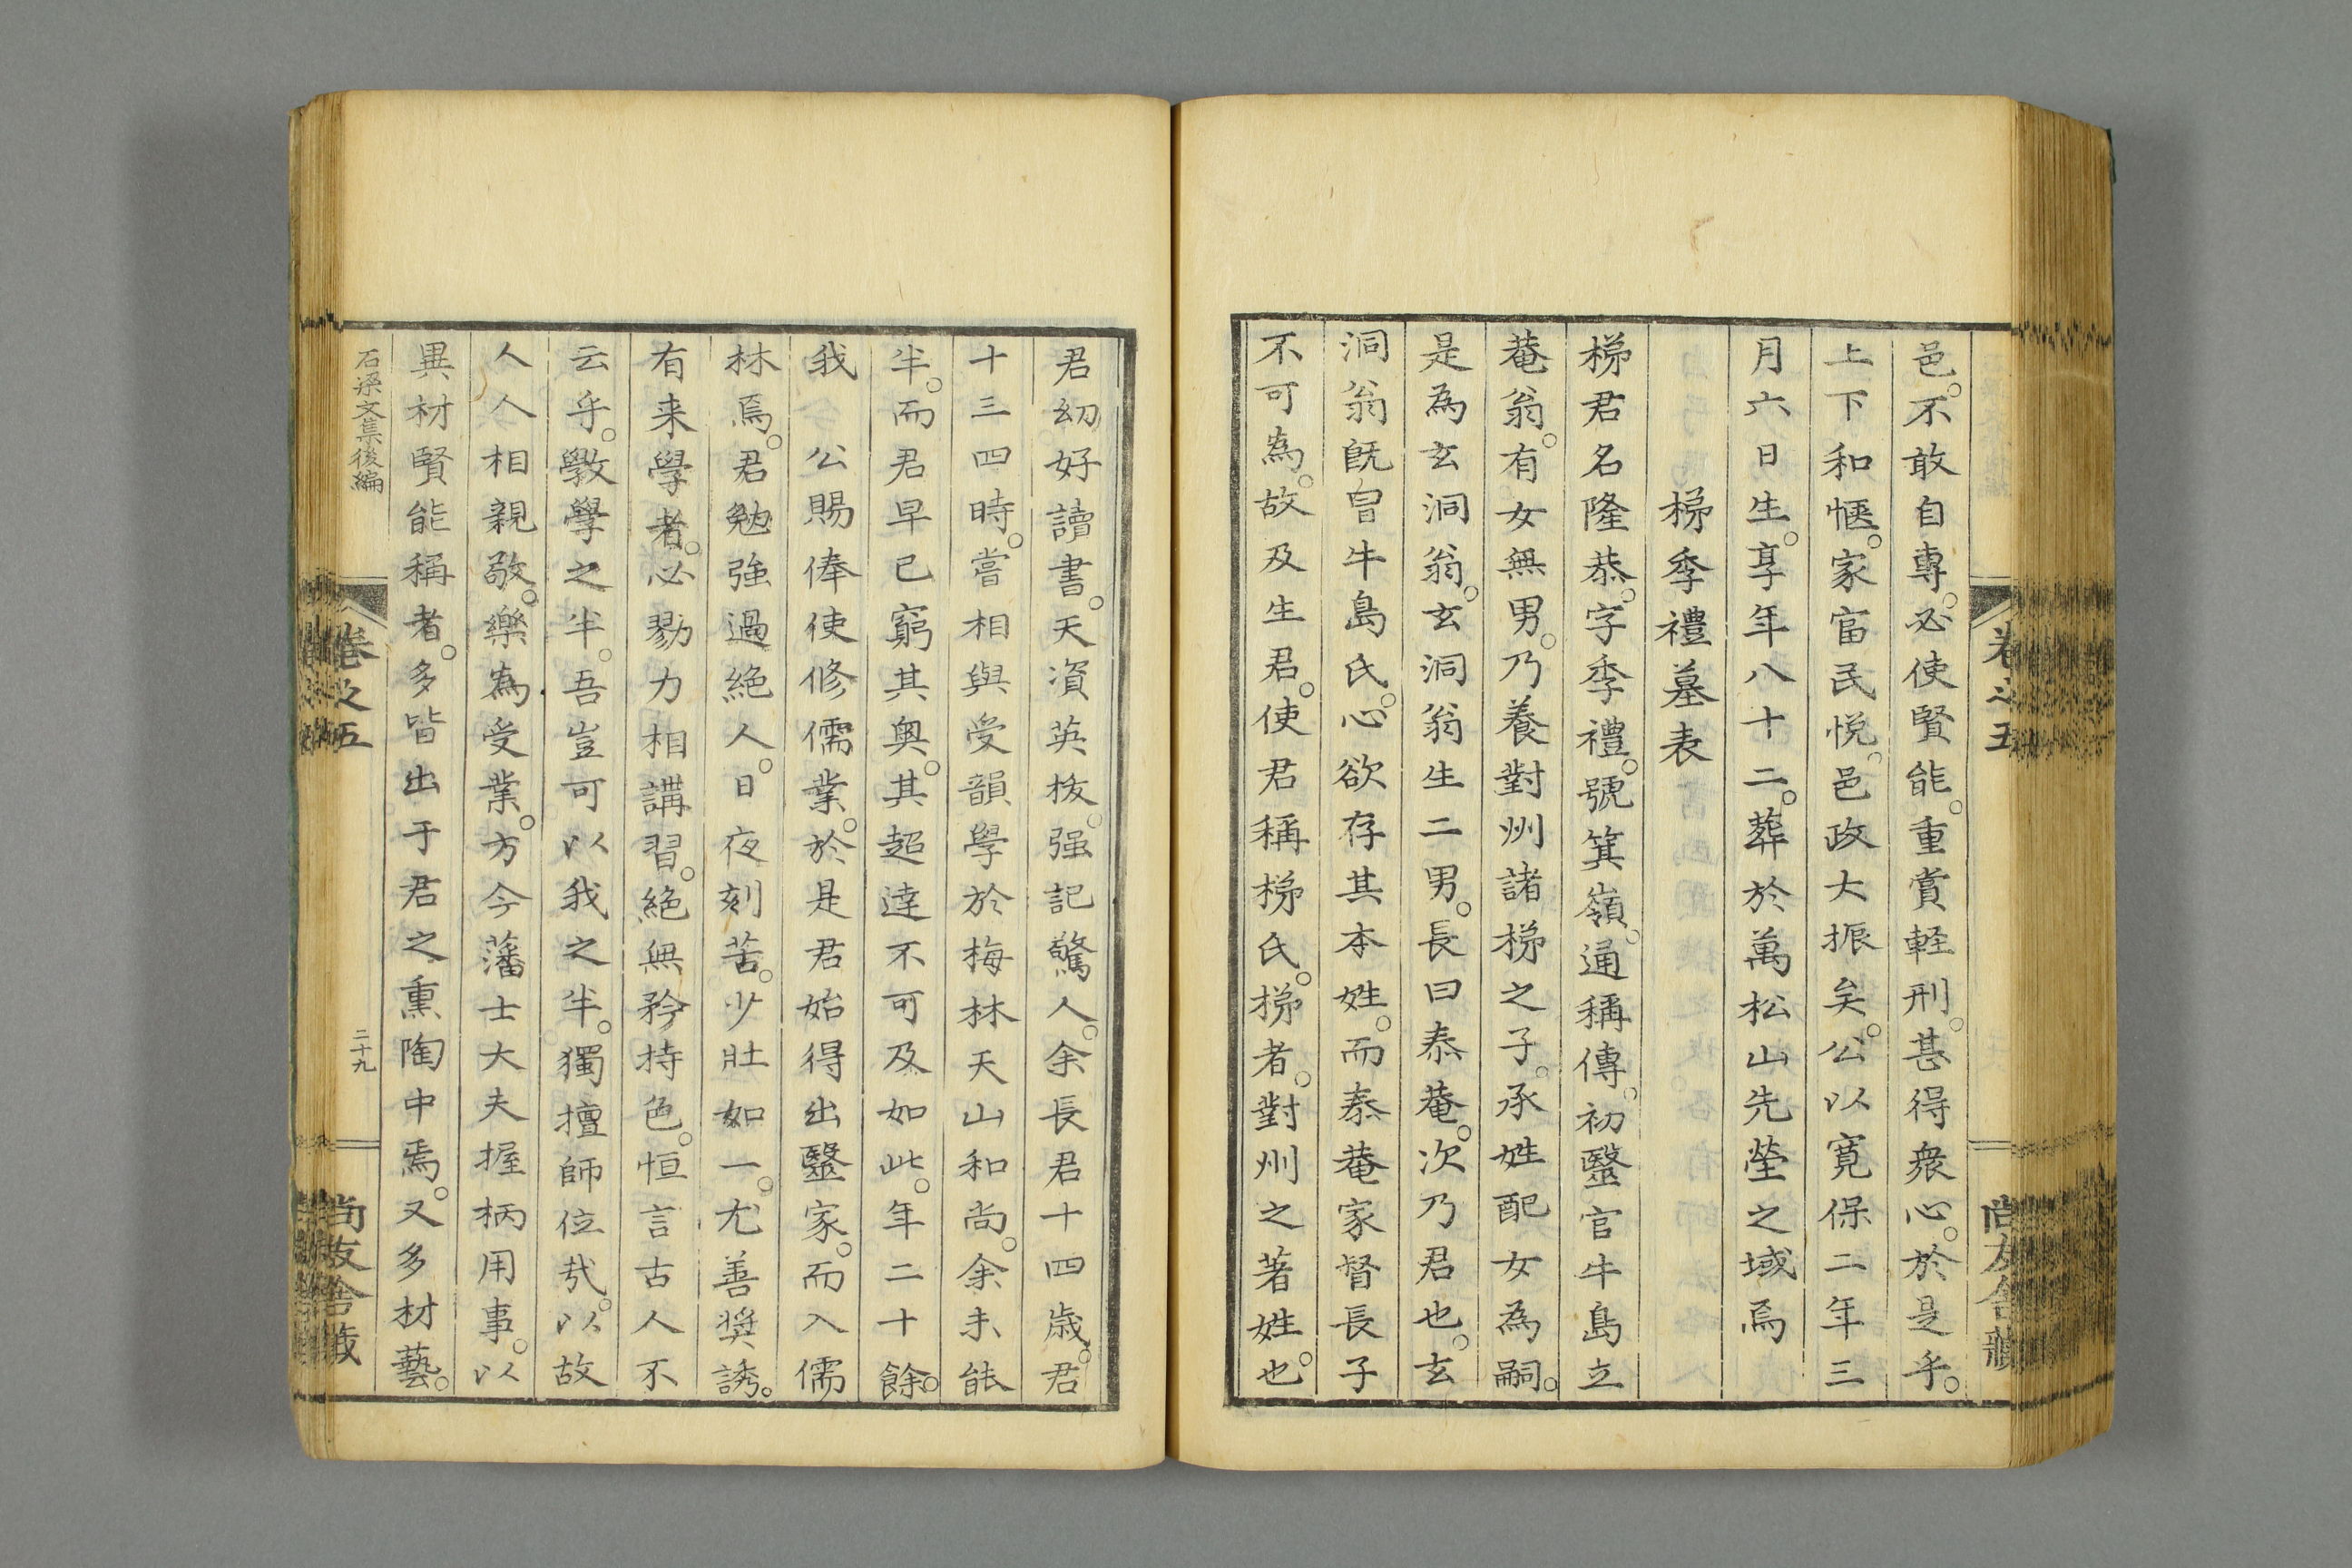 邑。不敢自專。必使賢能。重賞軽刑。甚得衆心。於是乎。
上下和愜。家富民悦。邑政大振矣。公以寛保二年三
月六日生。享年八十二。葬於萬松山先塋之域焉
梯季禮墓表
梯君名隆恭。字季禮。號箕嶺。通稱傳。初醫官牛島立
菴翁。有女無男。乃養對州諸梯之子。承姓配女為嗣。
是為玄洞翁。玄洞翁生二男。長曰泰菴。次乃君也。玄
洞翁既冒牛島氏。心欲存其本姓。而泰菴家督長子
不可為。故及生君。使君稱梯氏。梯者。對州之著姓也。
卷之五
尚友舎蔵
君幼好讀書。天資英抜。强記驚人。余長君十四歳。君
十三四時。嘗相與受韻學於梅林天山和尚。余未能
半。而君早已窮其奥。其超達不可及如此。年二十餘。
我 公賜俸使修儒業。於是君始得出醫家。而入儒
林焉。君勉強過絶人。日夜刻苦。少壯如一。尤善奨誘。
有来學者。必勠力相講習。絶無矜持色。恒言古人不
云乎。斆學之半。吾豈可以我之半。獨擅師位哉。以故
人人相親敬。樂為受業。方今藩士大夫握柄用事。以
異材賢能稱者。多皆出于君之熏陶中焉。又多材藝。
石梁文集後編
卷之五
二十九
尚友舎蔵